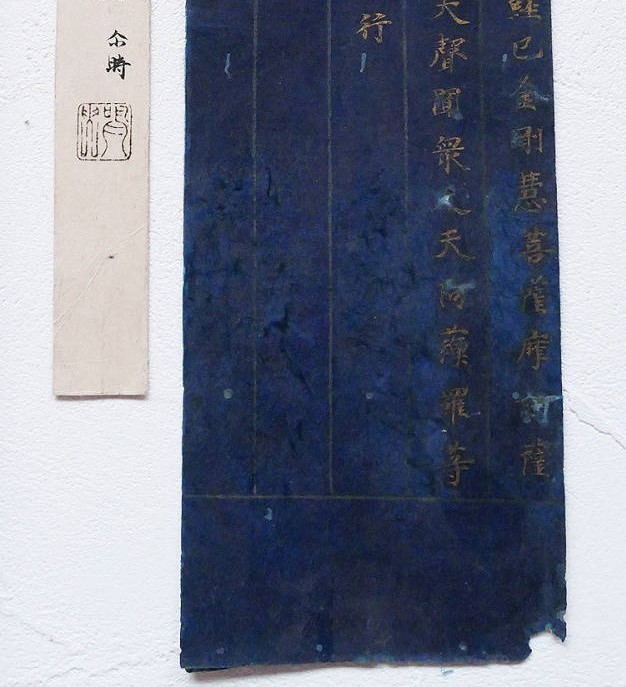 經已金剛慧菩薩摩訶薩
大聲聞衆人天阿蘇羅等
行
尒時